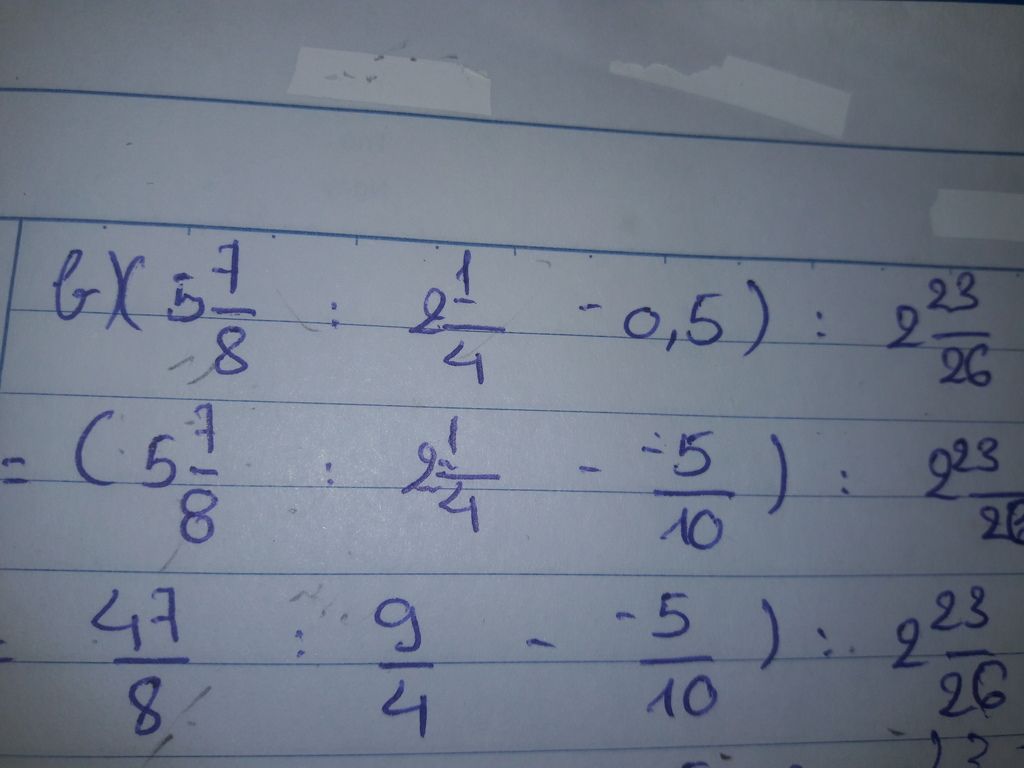 b) ( 5 7/8 : 2 1/4 - 0,5 ) : 2 23/26
= ( 5 7/8 : 2 1/4 - -5/10 ) : 2 23/26
= 47/8 : 9/4 - -5/10 ) : 2 23/26